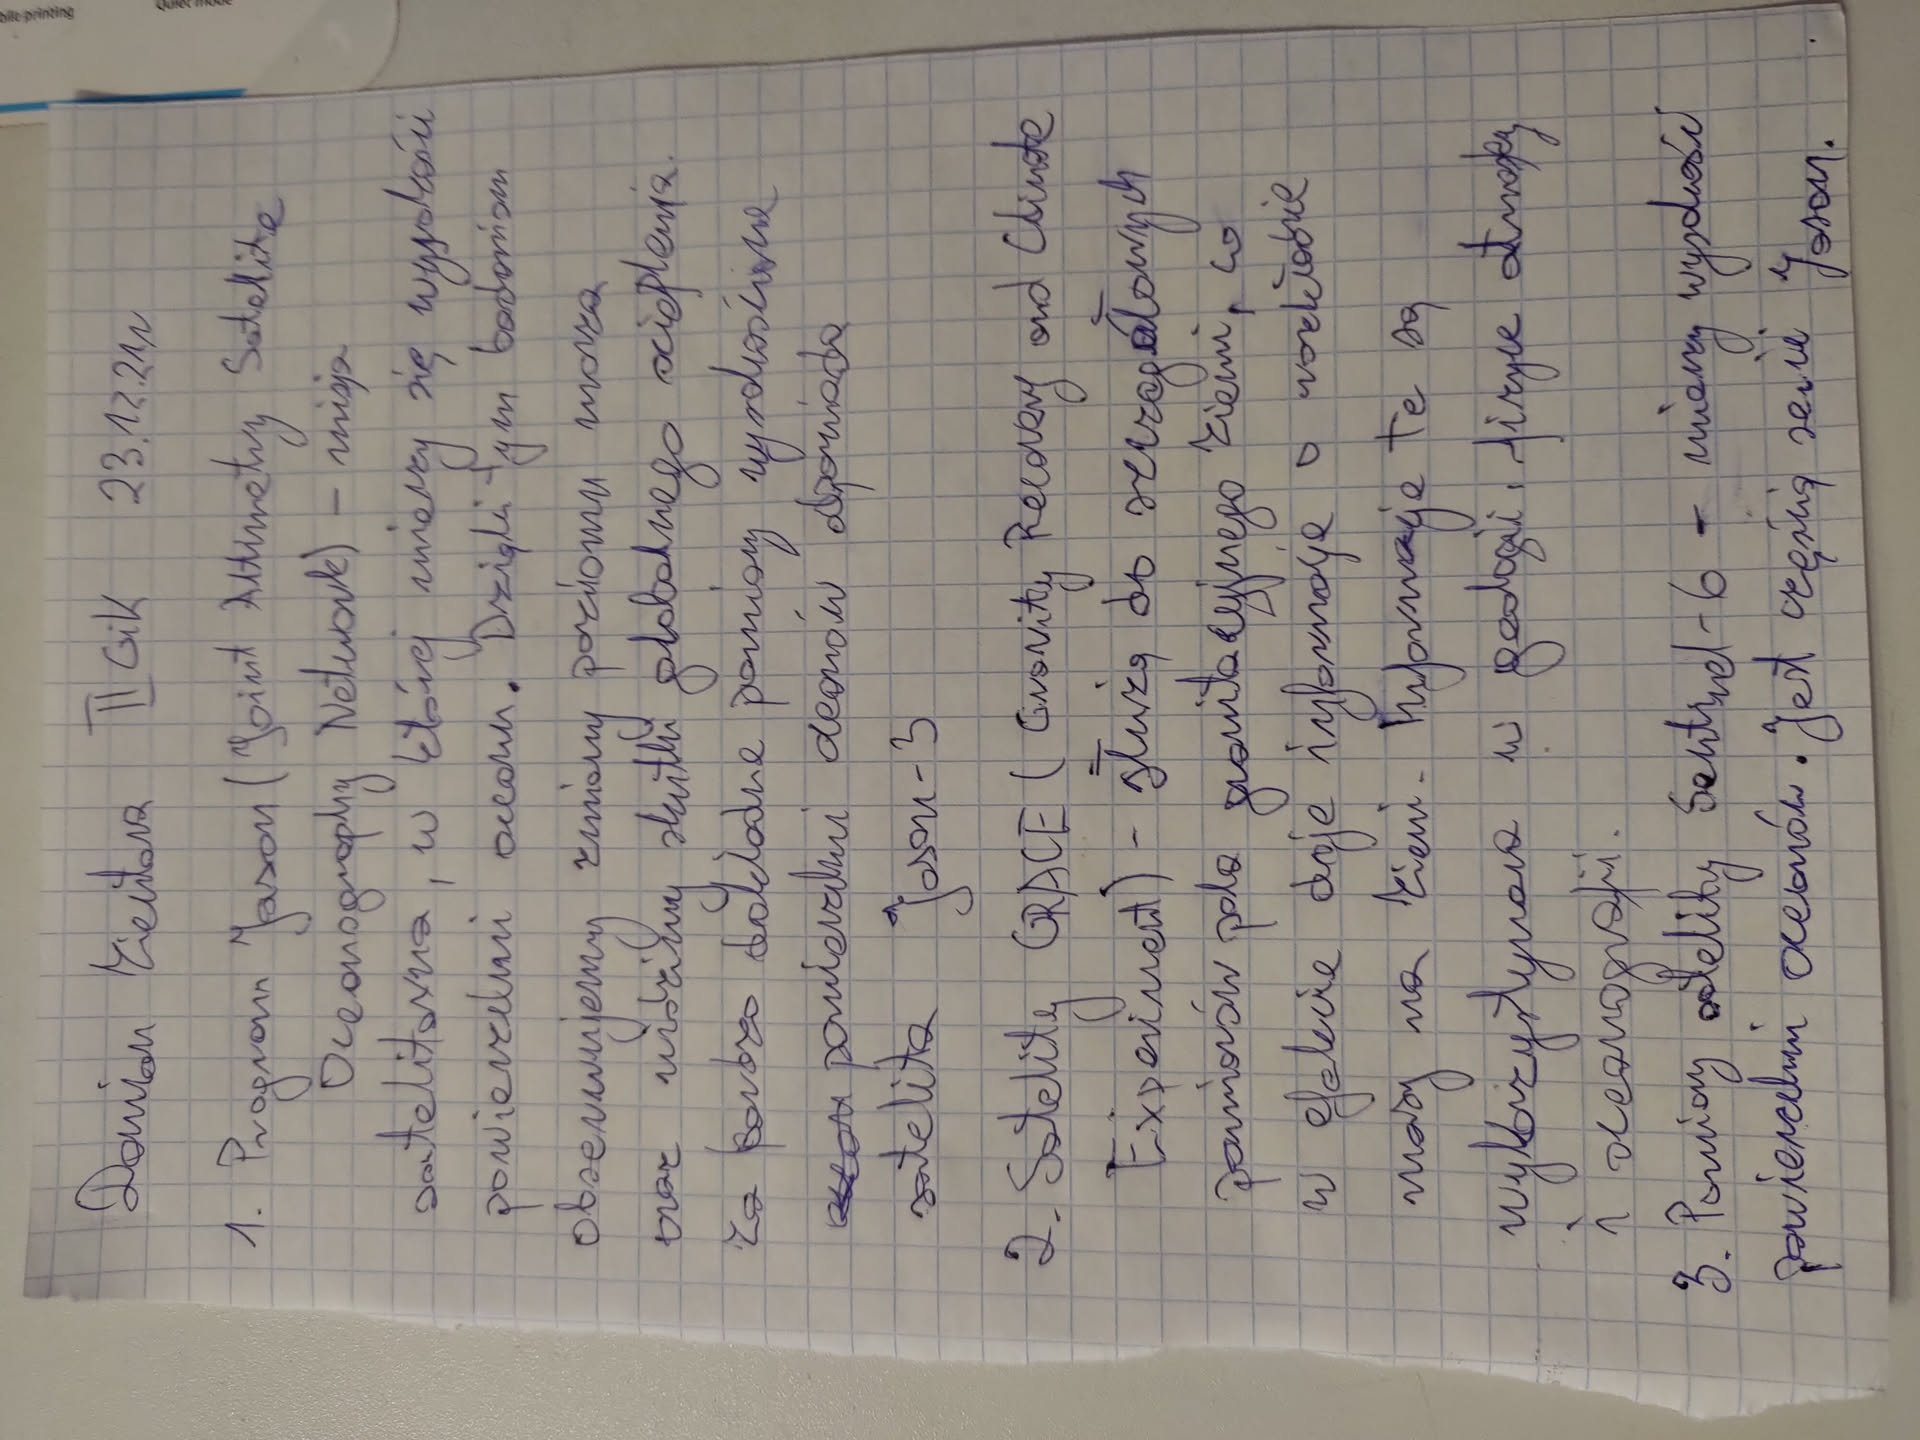 bile printing
Quiet mode
Damian Zientara III GiK 23.12.21r
1. Program Jason (Joint Altimetry Satellite
Oceanography Network) - misja
satelitarna, w której mierzy się wysokości
powierzchni oceanu. Dzięki tym badaniom
obserwujemy zmiany poziomu morza
oraz widzimy skutki globalnego ocieplenia.
Za bardzo dokładne pomiary wysokościowe
powierzchni oceanów odpowiada
satelita Jason-3
2. Satelity GRACE (Gravity Recovery and Climate
Experiment) - służą do szczegółowych
pomiarów pola grawitacyjnego Ziemi, co
w efekcie daje informację o rozkładzie
masy na Ziemi. Informacje te są
wykorzystywane w geologii, fizyce atmosfery
i oceanografii.
3. Pomiary satelity Sentinel-6 - mierzy wysokość
powierzchni oceanów. Jest częścią serii Jason.